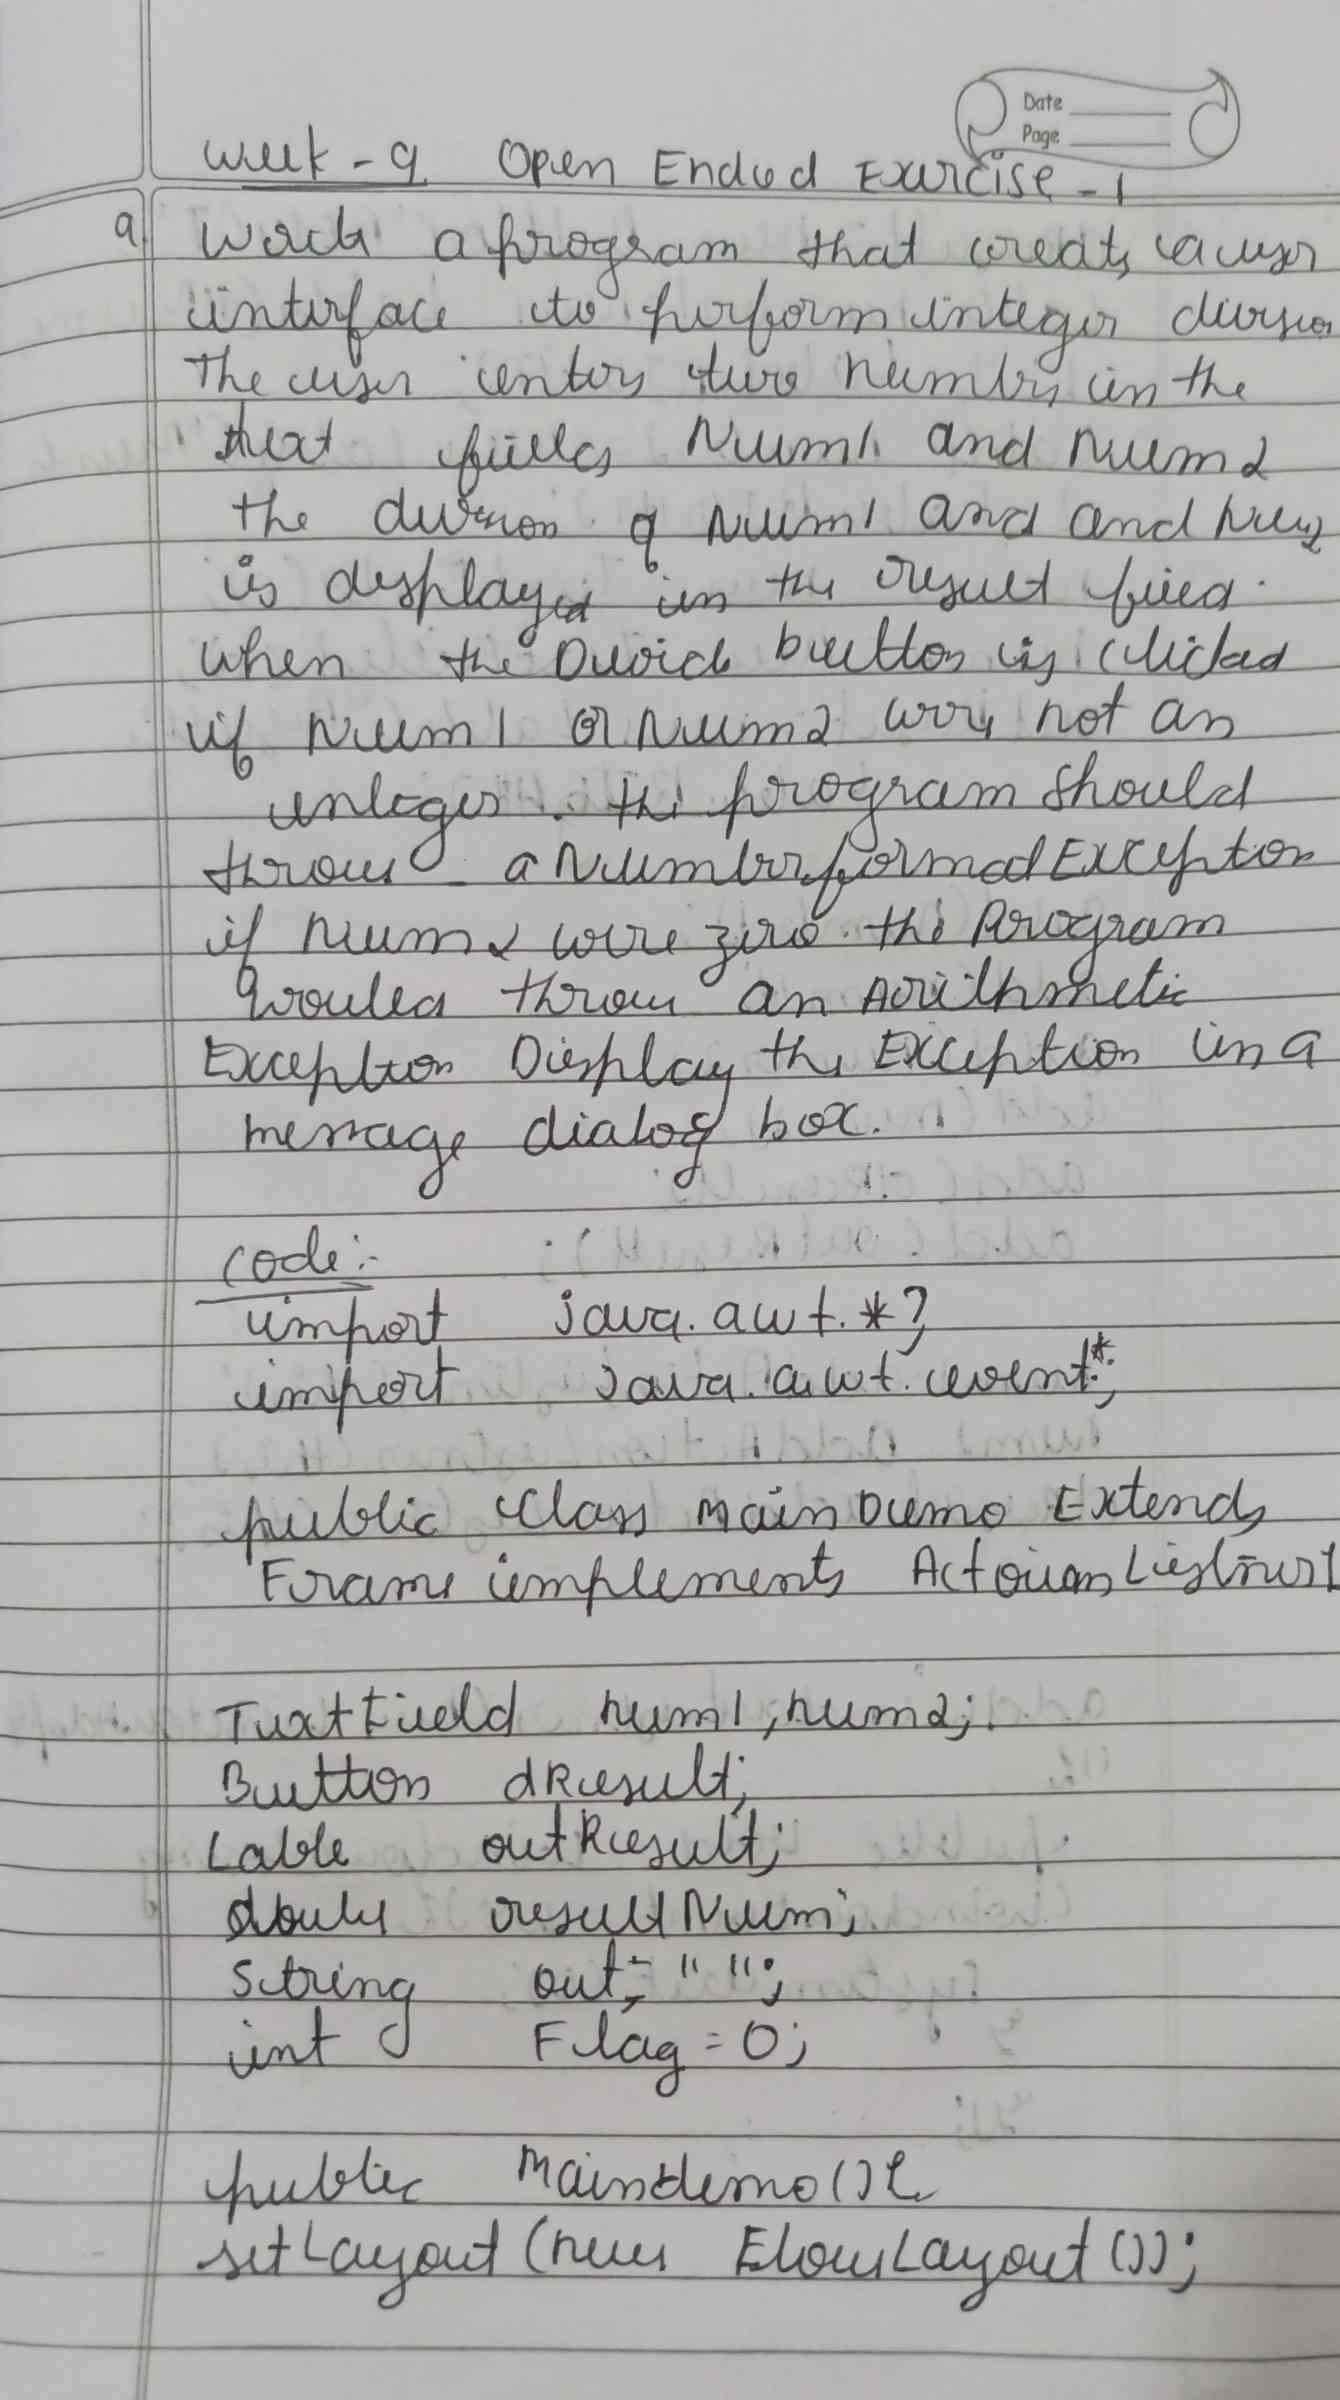 Date
Page
Week - 9 Open Ended Exercise - 1
a. a program that creats a user
interface to perform integer division
The user enters two numbrs in the
text fields Num1 and Num2
the division of Num1 and and Num2
is displayed in the result field.
when the Divide button is clicked
if Num1 or Num2 were not an
integer. the program should
throw a NumberformadException
if Num2 were zero. the Program
would throw an Arithmetic
Exception Display the Exception in a
message dialog box.
code:-
import java.awt.*;
import java.awt.event.*;
public class MainDemo Extends
Frame implements ActouionListner{
TextField num1, num2;
Button dResult;
Lable outResult;
double resultNum;
String out = " ";
int Flag = 0;
public Maindemo(){
setLayout (new FlowLayout());